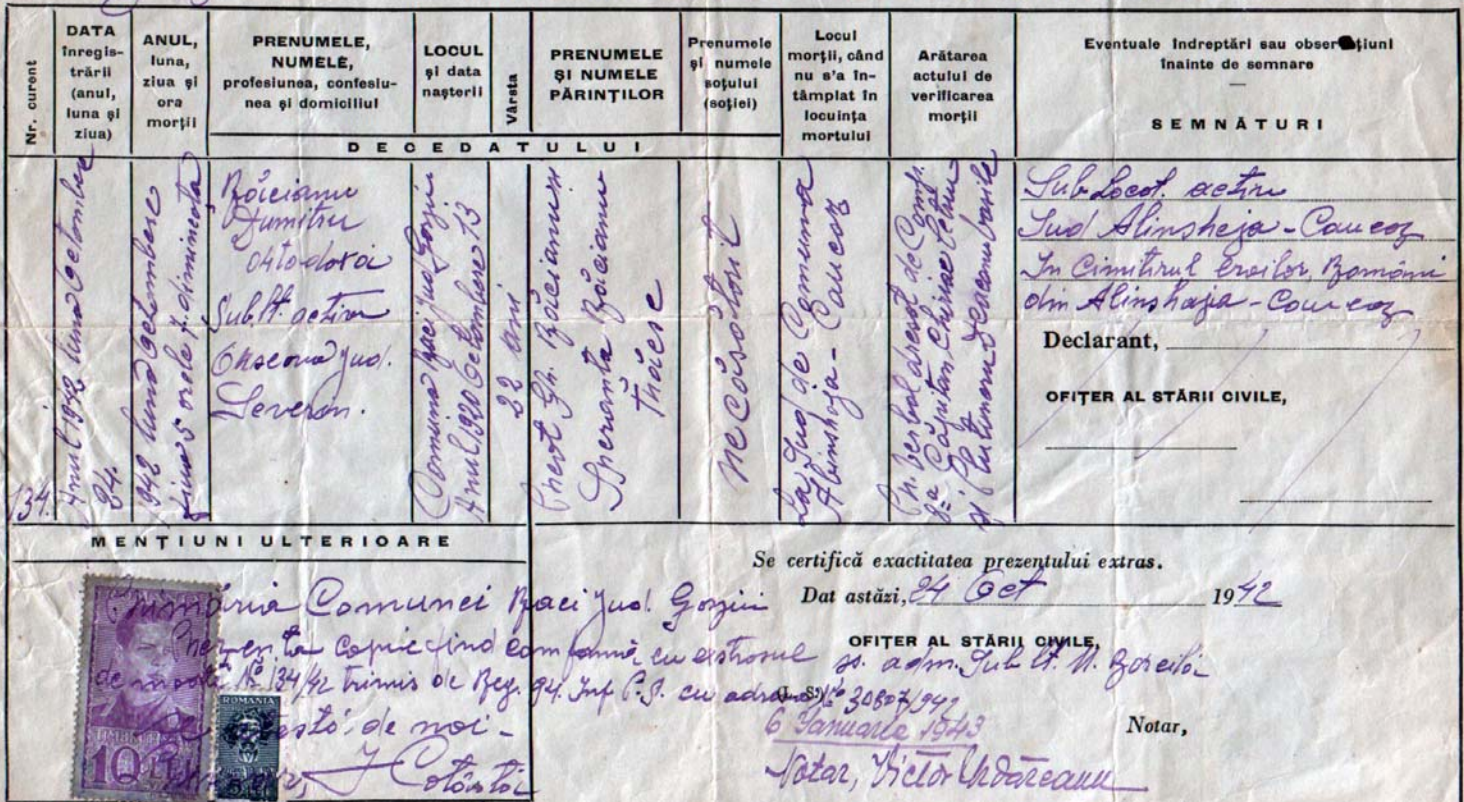 Nr. curent
DATA
înregis-
trării
(anul,
luna și
ziua)
ANUL,
luna,
ziua și
ora
morții
PRENUMELE,
NUMELE,
profesiunea, confesiu-
nea și domiciliul
LOCUL
și data
nașterii
Vârsta
PRENUMELE
ȘI NUMELE
PĂRINȚILOR
Prenumele
și numele
soțului
(soției)
Locul
morții, când
nu s'a în-
tâmplat în
locuința
mortului
Arătarea
actului de
verificarea
morții
Eventuale îndreptări sau observațiuni
înainte de semnare
SEMNĂTURI
DECEDATULUI
134.
Anul 1942 luna Octombrie
24.
1942 luna Octombrie
ziua 5 orele 7. dimineața
Dumitru
Sub.lt. activ
jud.
Severin.
Comuna Baci jud Gorjiu
Anul 1920 Octombrie 13
22 ani
Gh.
Speranta
necăsătorit
La Jud de Comuna
Alinshaja - Caucoz
verbal dresat de
8-a Căpitan Chiriac
și
Sub Locot. activ
Jud Alinsheja - Caucoz
In Cimitirul Eroilor Români
din Alinshaja - Caucoz
Declarant,
OFIȚER AL STĂRII CIVILE,
MENȚIUNI ULTERIOARE
Primăria Comunei Baci jud. Gorjiu
Prezenta copie fiind conformă cu extrasul
de moarte No 134/42 trimis de Reg. 94. Inf. cu adresa No 30807/942
de noi -
TIMBRU
10 LEI
ROMANIA
Se certifică exactitatea prezentului extras.
Dat astăzi, 24 Oct 1942
OFIȚER AL STĂRII CIVILE,
ss. adm. Sub lt.
(L. S.)
6 Ianuarie 1943
Notar,
Notar, Victor Urdăreanu